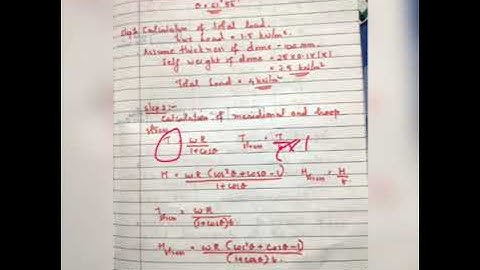 θ = 61° 56'
Step 2 Calculation of total load.
Live load = 1.5 kN/m².
Assume thickness of dome = 100 mm
Self weight of dome = 25×0.1×1×1
= 2.5 kN/m²
Total load = 4 kN/m²
Step 3:-
Calculation of meridional and hoop
stress
T = wR / 1+cosθ    T stress = T /
H = wR (cos²θ + cosθ - 1) / 1+cosθ    H stress = H / t
T stress = wR / (1+cosθ)t
H stress = wR (cos²θ + cosθ - 1) / (1+cosθ)t.